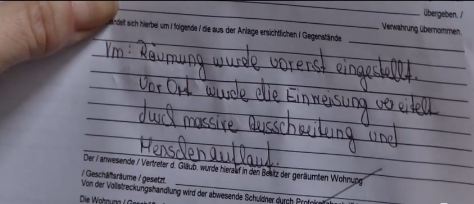 übergeben. /
Verwahrung übernommen.
handelt sich hierbei um / folgende / die aus der Anlage ersichtlichen / Gegenstände
Vm: Räumung wurde vorerst eingestellt.
Vor Ort wurde die Einweisung vereitelt
durch massive Ausschreitung und
Menschenauflauf.
Der / anwesende / Vertreter d. Gläub. wurde hierauf in den Besitz der geräumten Wohnung
/ Geschäftsräume / gesetzt.
Von der Vollstreckungshandlung wird der abwesende Schuldner durch
Die Wohnung /